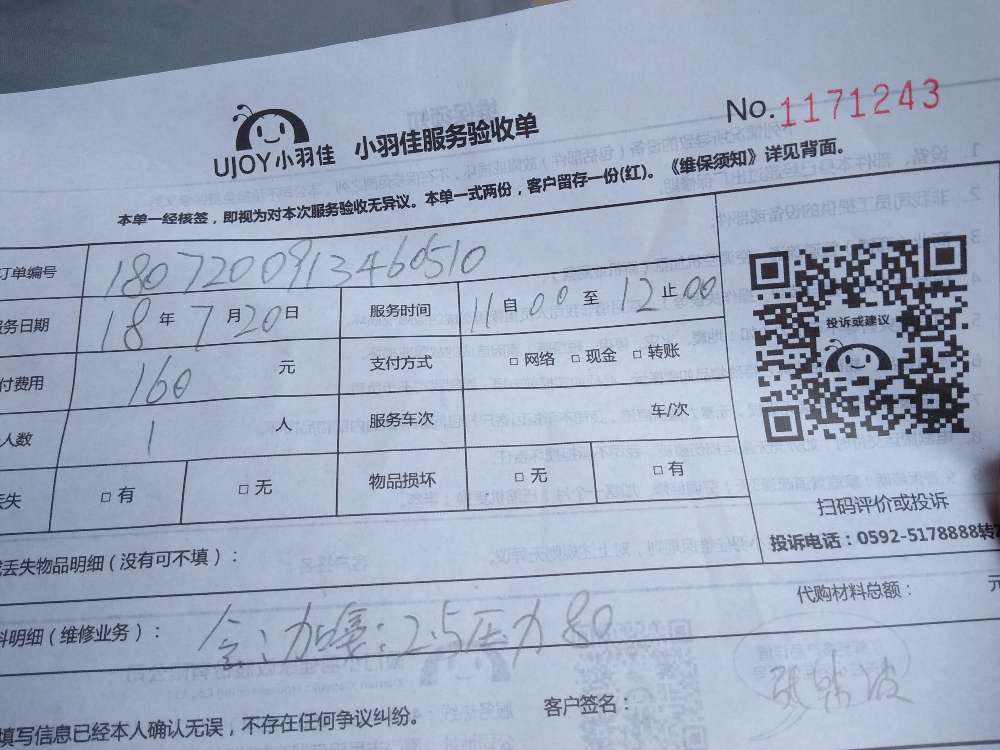 No.1171243
UJOY小羽佳 小羽佳服务验收单
本单一经核签，即视为对本次服务验收无异议。本单一式两份，客户留存一份(红)。《维保须知》详见背面。
订单编号 1807200913460510
务日期 18年7月20日 服务时间 11自00至12止00
付费用 160元 支付方式 □网络 □现金 □转账
人数 1人 服务车次 车/次
丢失 □有 □无 物品损坏 □无 □有
投诉或建议
扫码评价或投诉
投诉电话：0592-5178888转
丢失物品明细（没有可不填）：
代购材料总额： 元
料明细（维修业务）： 加 2.5压力80
填写信息已经本人确认无误，不存在任何争议纠纷。 客户签名：